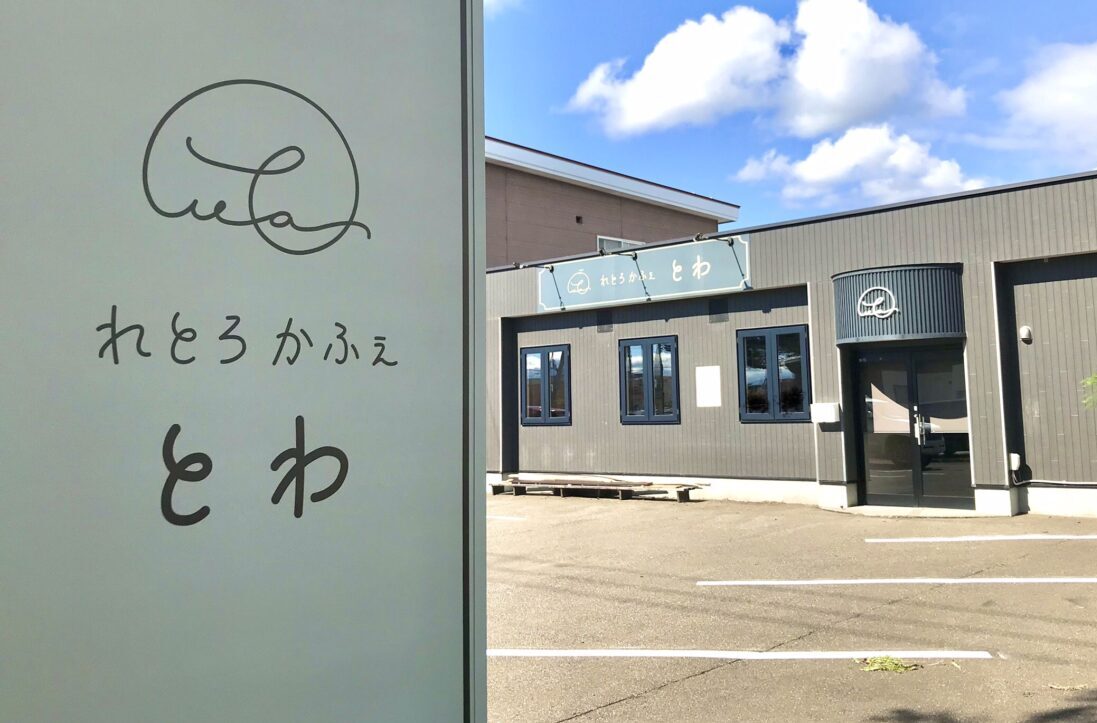 れとろかふぇ
とわ
れとろかふぇ とわ